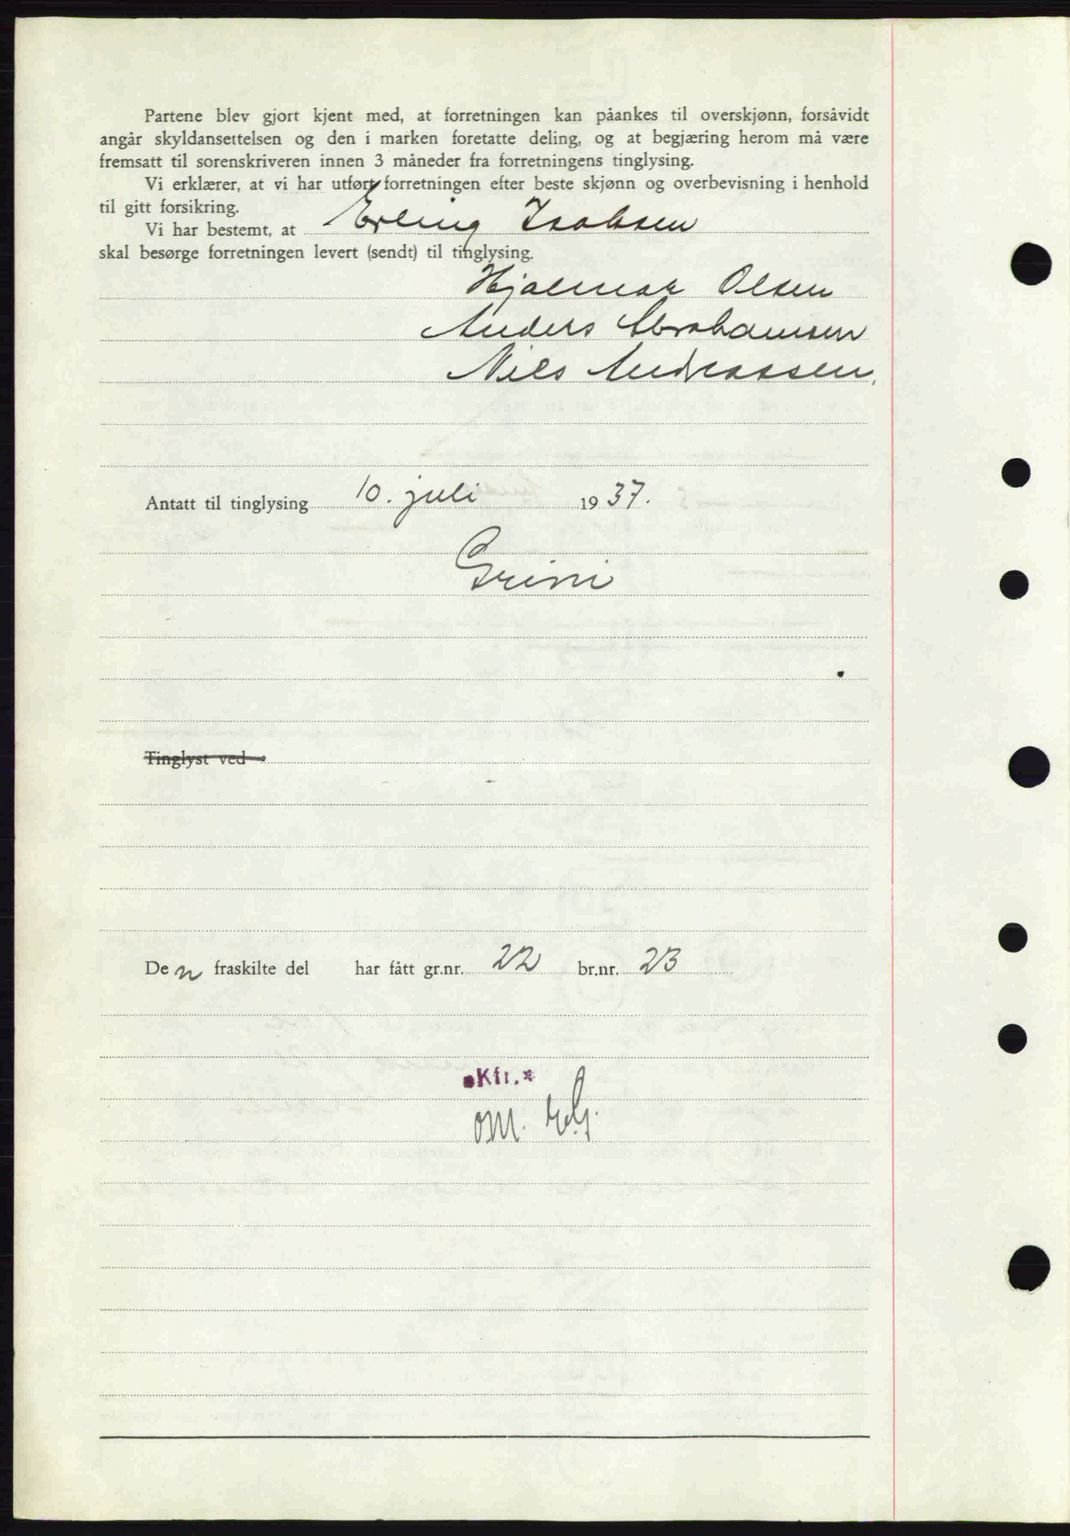 Partene blev gjort kjent med, at forretningen kan påankes til overskjønn, forsåvidt
angår skyldansettelsen og den i marken foretatte deling, og at begjæring herom må være
fremsatt til sorenskriveren innen 3 måneder fra forretningens tinglysing.
Vi erklærer, at vi har utført forretningen efter beste skjønn og overbevisning i henhold
til gitt forsikring.
Vi har bestemt, at Erling Isaksen
skal besørge forretningen levert (sendt) til tinglysing.
Hjalmar Olsen
Anders Abrahamsen
Nils Andreassen.
Antatt til tinglysing 10. juli 1937.
Grini
Tinglyst ved
Den fraskilte del har fått gr.nr. 22 br.nr. 23
Kfr.